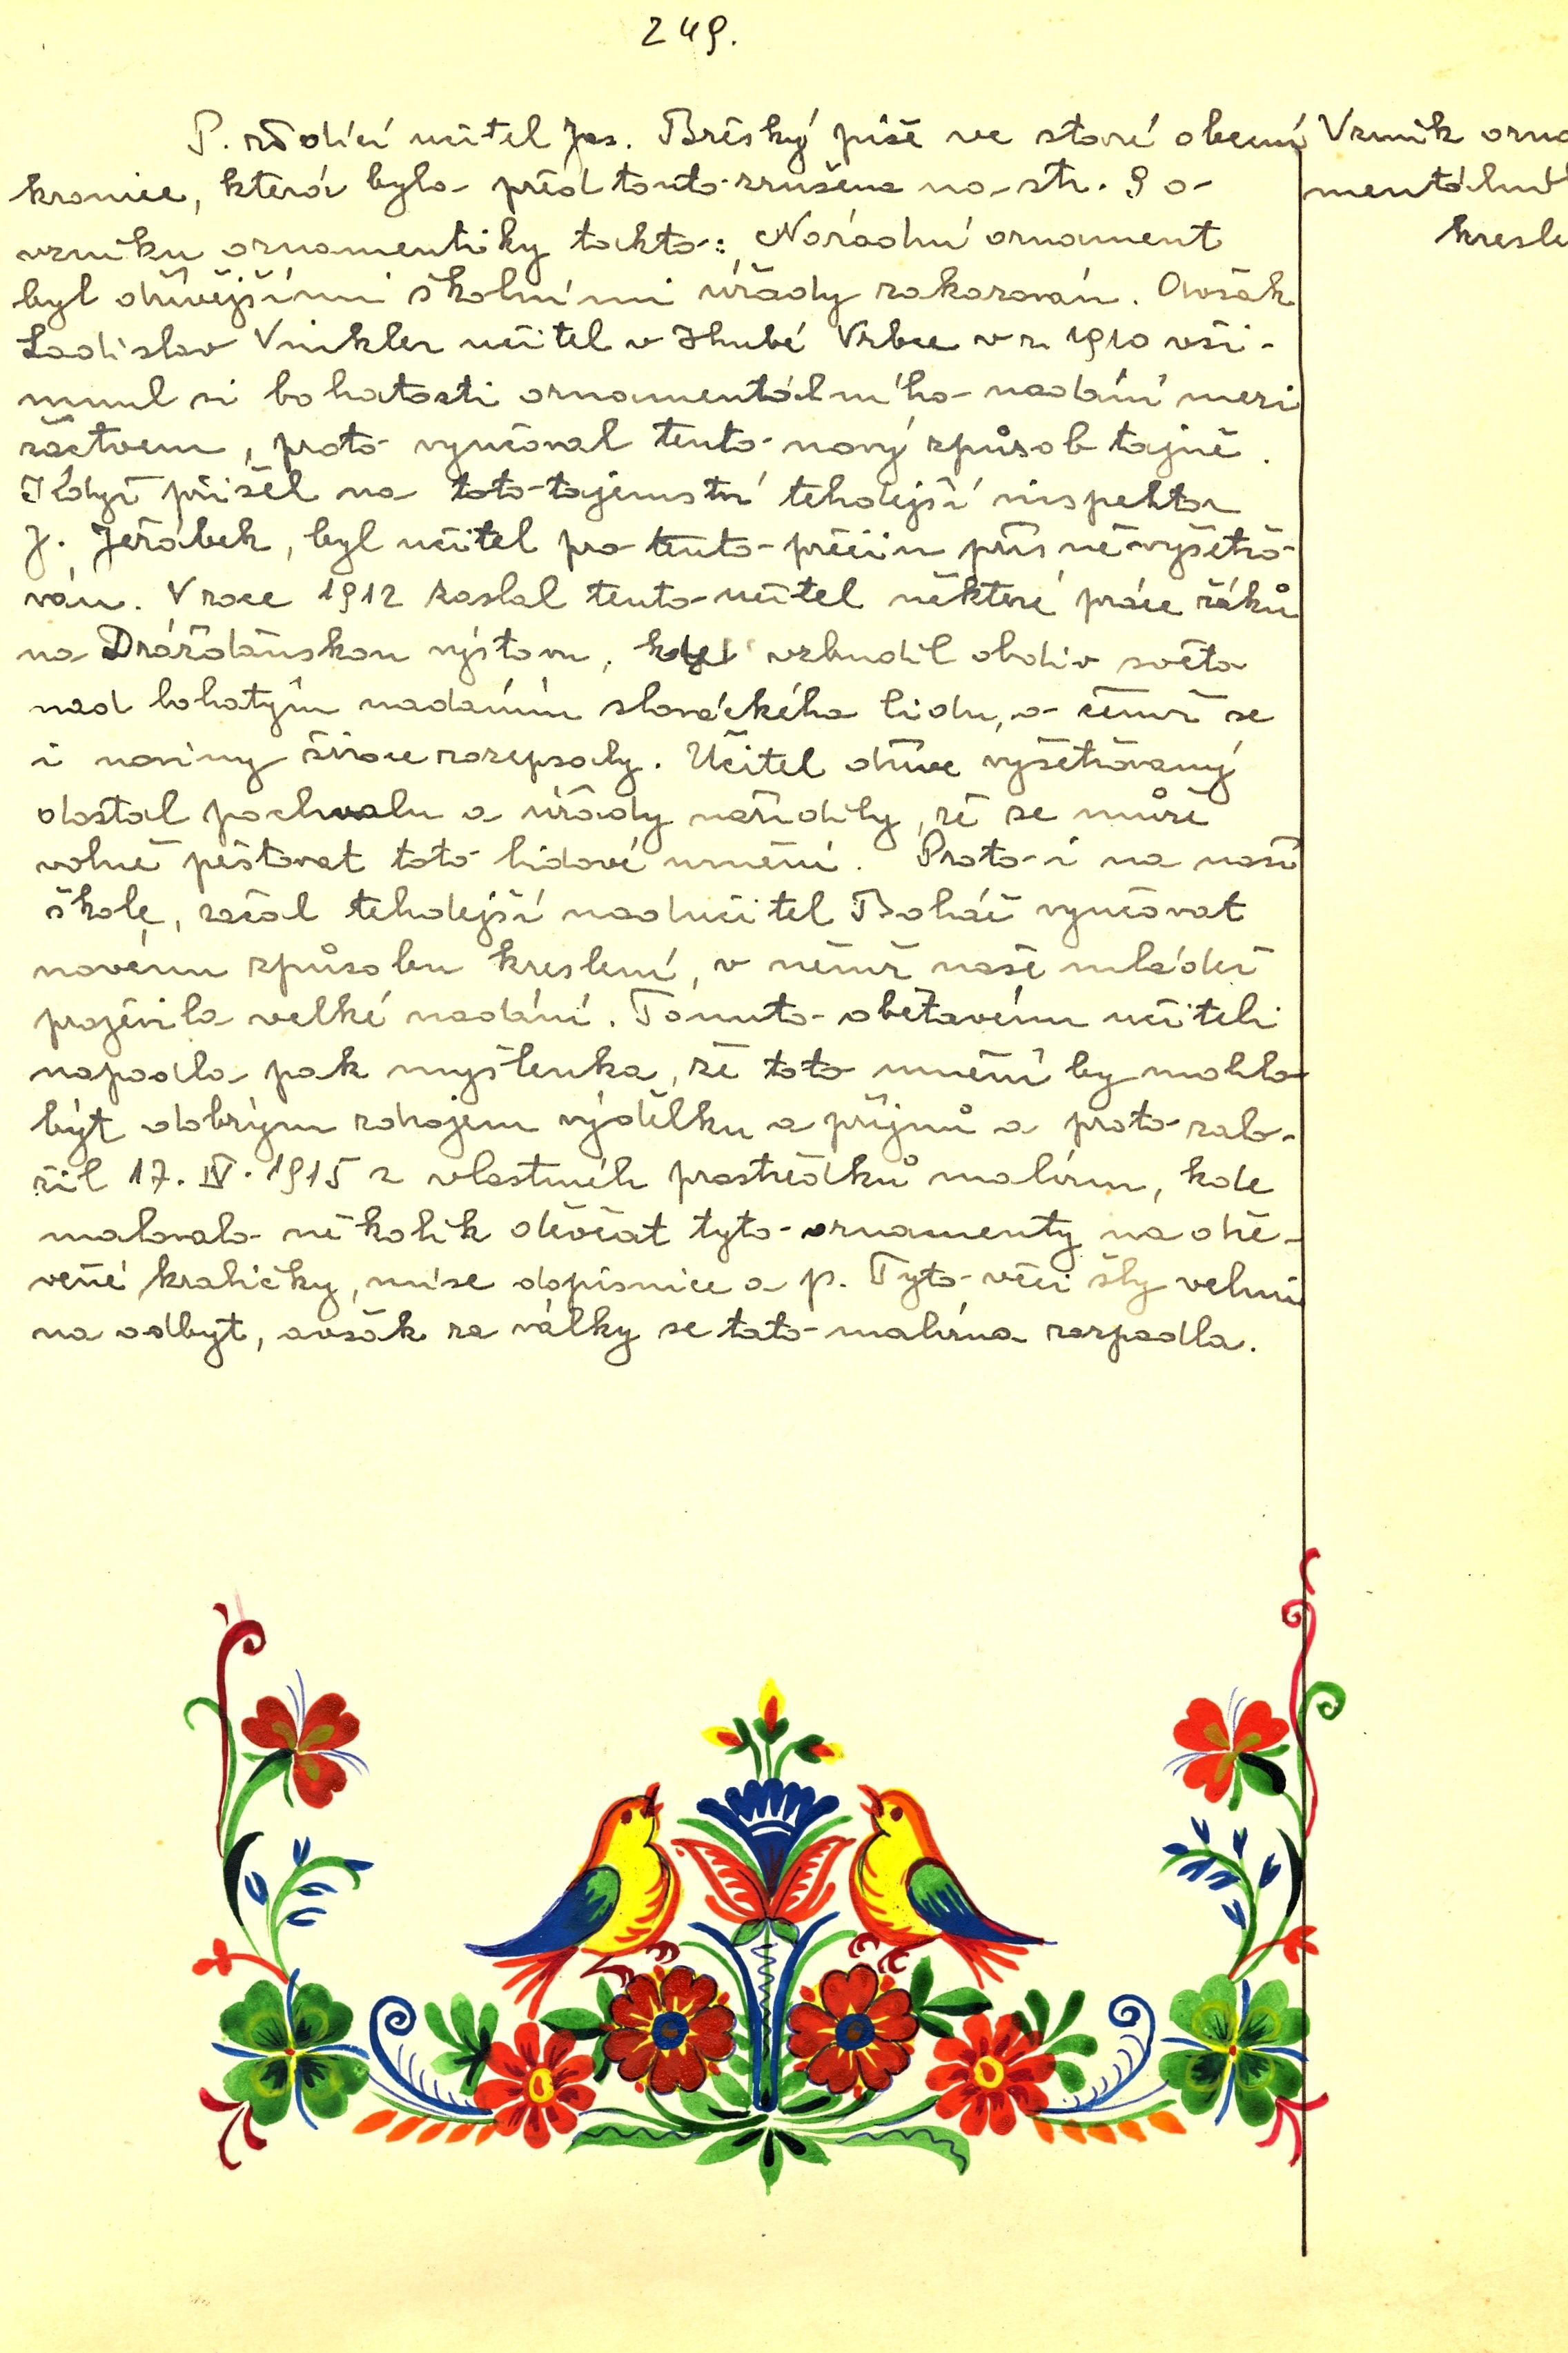 249.
P. řídící učitel Jos. Břéský píše ve staré obecní
kronice, která byla před touto zrušena na str. 9 o
vzniku ornamentiky takto: Národní ornament
byl dřívějšími školními úřady zakazován. Avšak
Ladislav Vinkler učitel v Hrubé Vrbce v r. 1910 vši-
mnul si bohatosti ornamentálního nadání mezi
žactvem, proto vyučoval tento nový způsob tajně.
Když přišel na toto tajemství tehdejší inspektor
J. Jeřábek, byl učitel pro tento přečin přísně vyšetřo-
ván. V roce 1912 zaslal tento učitel některé práce žáků
na Drážďanskou výstavu, kde vzbudil obdiv světa
nad bohatým nadáním slováckého lidu, o čemž se
i noviny široce rozepsaly. Učitel dříve vyšetřovaný
dostal pochvalu a úřady nařídily, že se může
volně pěstovat toto lidové umění. Proto i na naší
škole, začal tehdejší nadučitel Boháč vyučovat
novému způsobu kreslení, v němž naše mládež
projevila velké nadání. Tomuto obětavému učiteli
napadla pak myšlenka, že toto umění by mohlo
být dobrým zdrojem výdělku a příjmů a proto zalo-
žil 17. IV. 1915 z vlastních prostředků malírnu, kde
malovalo několik děvčat tyto ornamenty na dře-
věné krabičky, míse dopisnice a p. Tyto věci šly velmi
na odbyt, avšak za války se tato malírna rozpadla.
Vznik orna
mentální
kresle